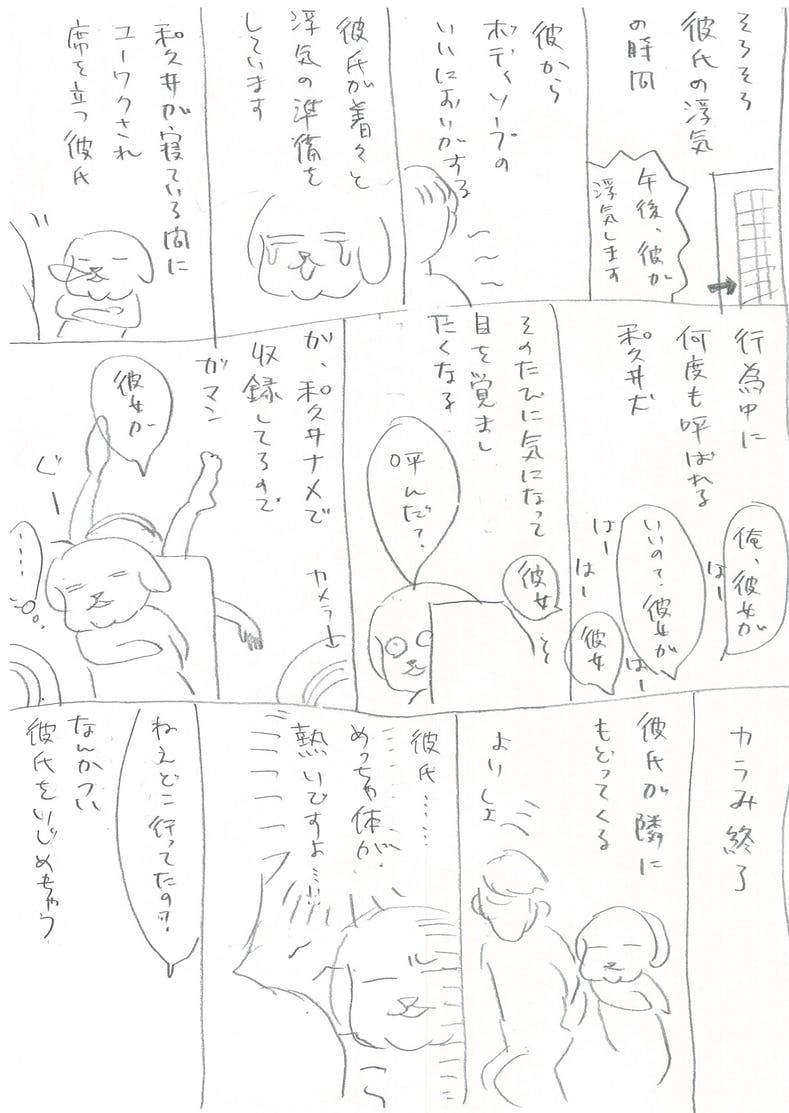 そろそろ
彼氏の浮気
の時間
午後、彼が
浮気します
彼から
ボディソープの
いいにおいがする
彼氏が着々と
浮気の準備を
しています
和久井が寝ている間に
ユーワクされ
席を立つ彼氏
行為中に
何度も呼ばれる
和久井犬
俺、彼女が
はー
いいの?彼女が
はー
はー
彼女
はー
そのたびに気になって
目を覚まし
たくなる
彼女
呼んだ?
が、和久井ナメで
収録してるので
ガマン
カメラ
彼女が
ぐー
……
カラみ終了
彼氏が隣に
もどってくる
よいしょ
彼氏……
めっちゃ体が
熱いですよ…!!
ねえどこ行ってたの?
なんかつい
彼氏をいじめちゃう